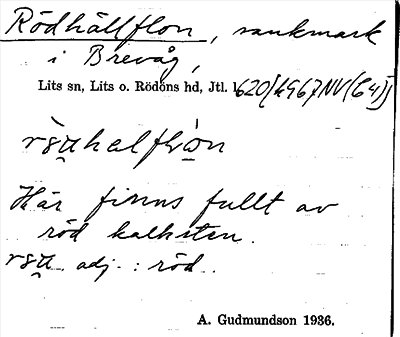 Rödhällflon, sankmark
i Brevåg,
Lits sn, Lits o. Rödöns hd, Jtl.
Här finns fullt av
röd kalksten.
adj.: röd.
A. Gudmundson 1936.